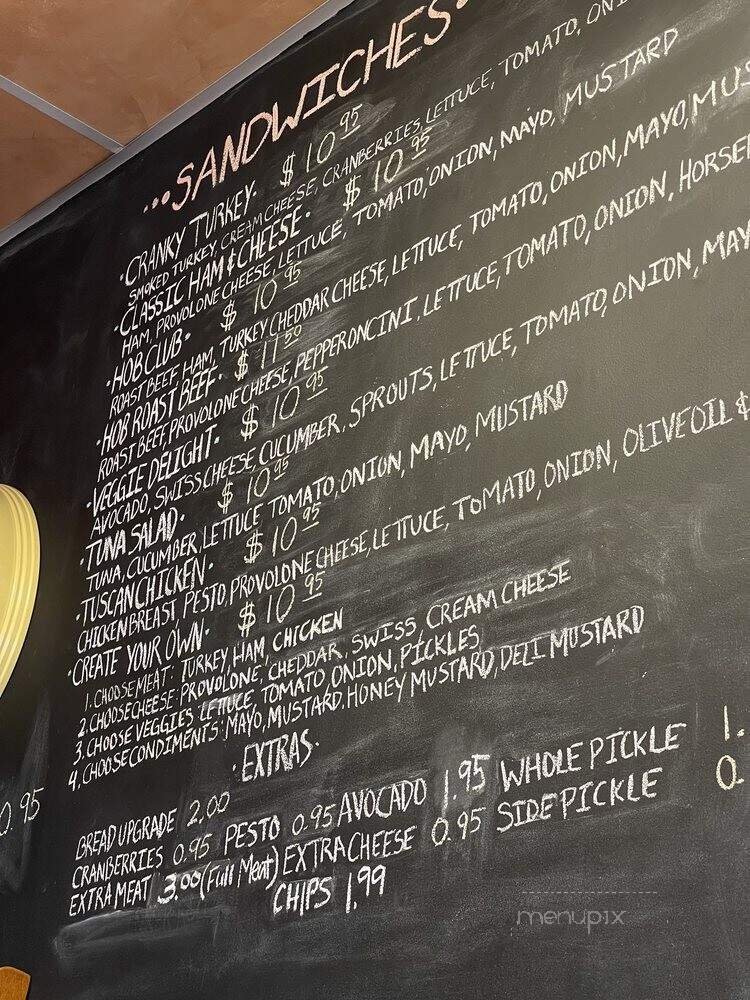 ...SANDWICHES.
•CRANKY TURKEY• $10.95
SMOKED TURKEY, CREAM CHEESE, CRANBERRIES, LETTUCE, TOMATO,
•CLASSIC HAM & CHEESE• $10.95
HAM, PROVOLONE CHEESE, LETTUCE, TOMATO, ONION, MAYO, MUSTARD
•HOB CLUB• $10.95
ROAST BEEF, HAM, TURKEY CHEDDAR CHEESE, LETTUCE, TOMATO, ONION, MAYO,
•HOB ROAST BEEF• $11.50
ROAST BEEF, PROVOLONE CHEESE, PEPPERONCINI, LETTUCE, TOMATO, ONION,
•VEGGIE DELIGHT• $10.95
AVOCADO, SWISS CHEESE, CUCUMBER, SPROUTS, LETTUCE, TOMATO, ONION,
•TUNA SALAD• $10.95
TUNA, CUCUMBER, LETTUCE TOMATO, ONION, MAYO, MUSTARD
•TUSCAN CHICKEN• $10.95
CHICKEN BREAST, PESTO, PROVOLONE CHEESE, LETTUCE, TOMATO, ONION, OLIVE OIL &
•CREATE YOUR OWN• $10.95
1. CHOOSE MEAT: TURKEY, HAM, CHICKEN
2. CHOOSE CHEESE: PROVOLONE, CHEDDAR, SWISS, CREAM CHEESE
3. CHOOSE VEGGIES LETTUCE, TOMATO, ONION, PICKLES
4. CHOOSE CONDIMENTS: MAYO, MUSTARD, HONEY MUSTARD, DELI MUSTARD
•EXTRAS•
0.95
BREAD UPGRADE 2.00
CRANBERRIES 0.95 PESTO 0.95 AVOCADO 1.95 WHOLE PICKLE 1.
EXTRA MEAT 3.00 (Full Meat) EXTRA CHEESE 0.95 SIDE PICKLE 0.
CHIPS 1.99
menupix